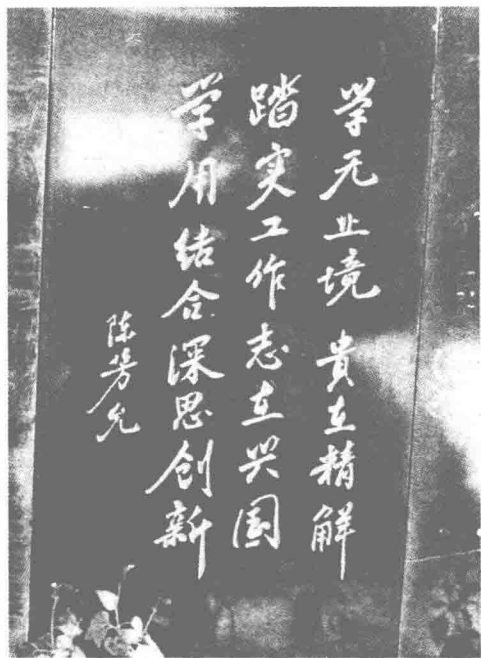 学无止境 貴在精解
踏实工作志在兴国
学用结合深思创新
陈芳允